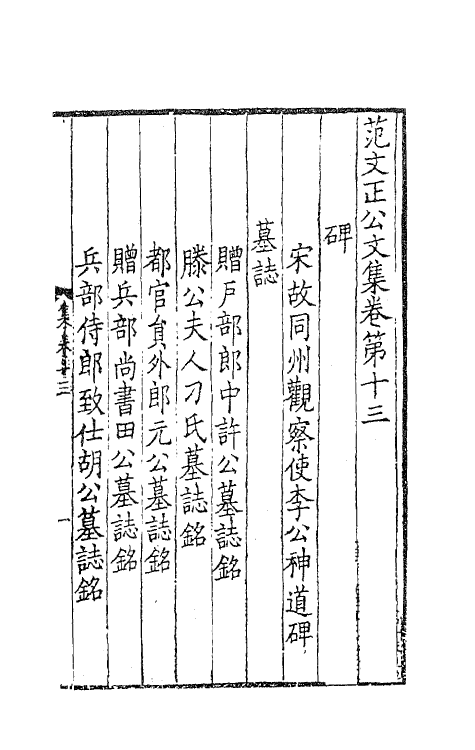 范文正公文集卷第十三
碑
宋故同州觀察使李公神道碑
墓誌
贈戶部郎中許公墓誌銘
滕公夫人刁氏墓誌銘
都官貟外郎元公墓誌銘
贈兵部尚書田公墓誌銘
兵部侍郎致仕胡公墓誌銘
集卷十三
一